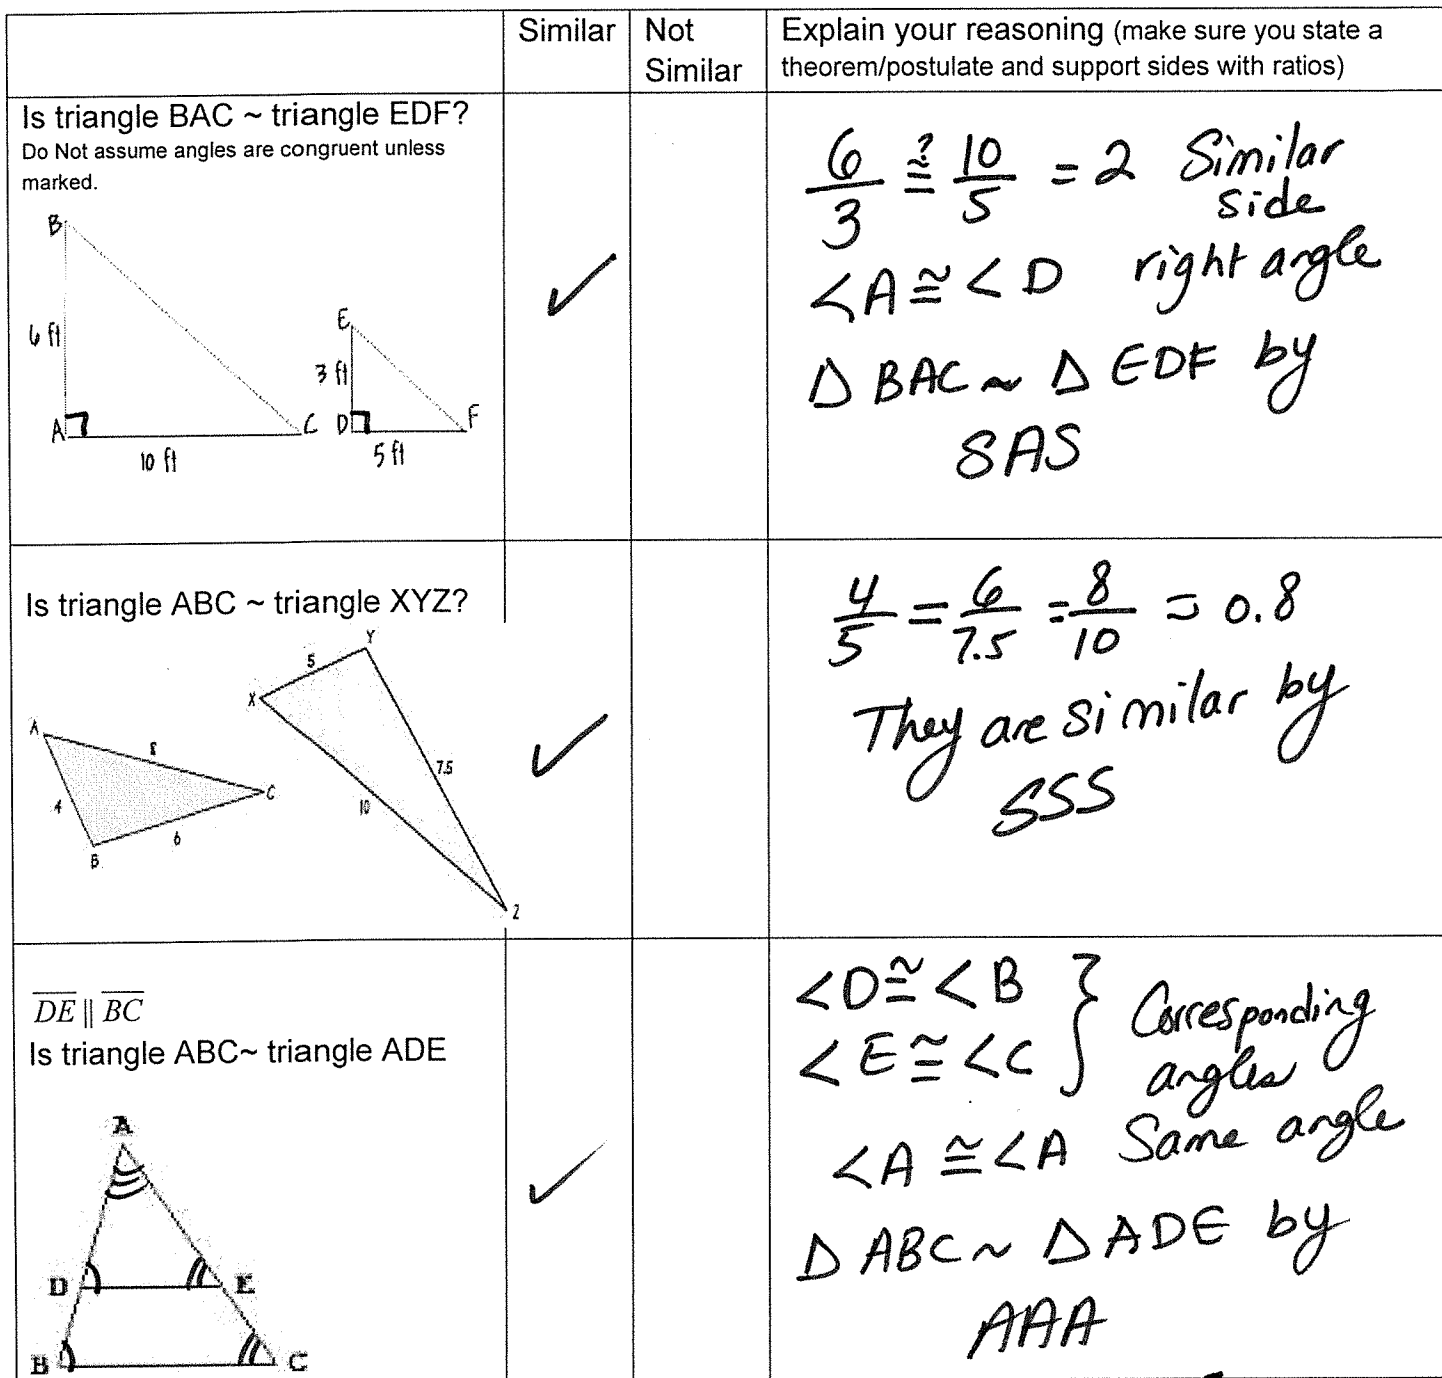 Similar
Not
Similar
Explain your reasoning (make sure you state a
theorem/postulate and support sides with ratios)
Is triangle BAC ~ triangle EDF?
Do Not assume angles are congruent unless
marked.
B
6 ft
A
C
10 ft
E
3 ft
D
F
5 ft
✓
6/3 ≅? 10/5 = 2 Similar
side
<A ≅ <D right angle
Δ BAC ~ Δ EDF by
SAS
Is triangle ABC ~ triangle XYZ?
A
8
C
4
6
B
Y
5
X
7.5
10
Z
✓
4/5 = 6/7.5 = 8/10 = 0.8
They are similar by
SSS
DE || BC
Is triangle ABC~ triangle ADE
A
D
E
B
C
✓
<D ≅ <B
<E ≅ <C } Corresponding
angles
<A ≅ <A Same angle
Δ ABC ~ Δ ADE by
AAA